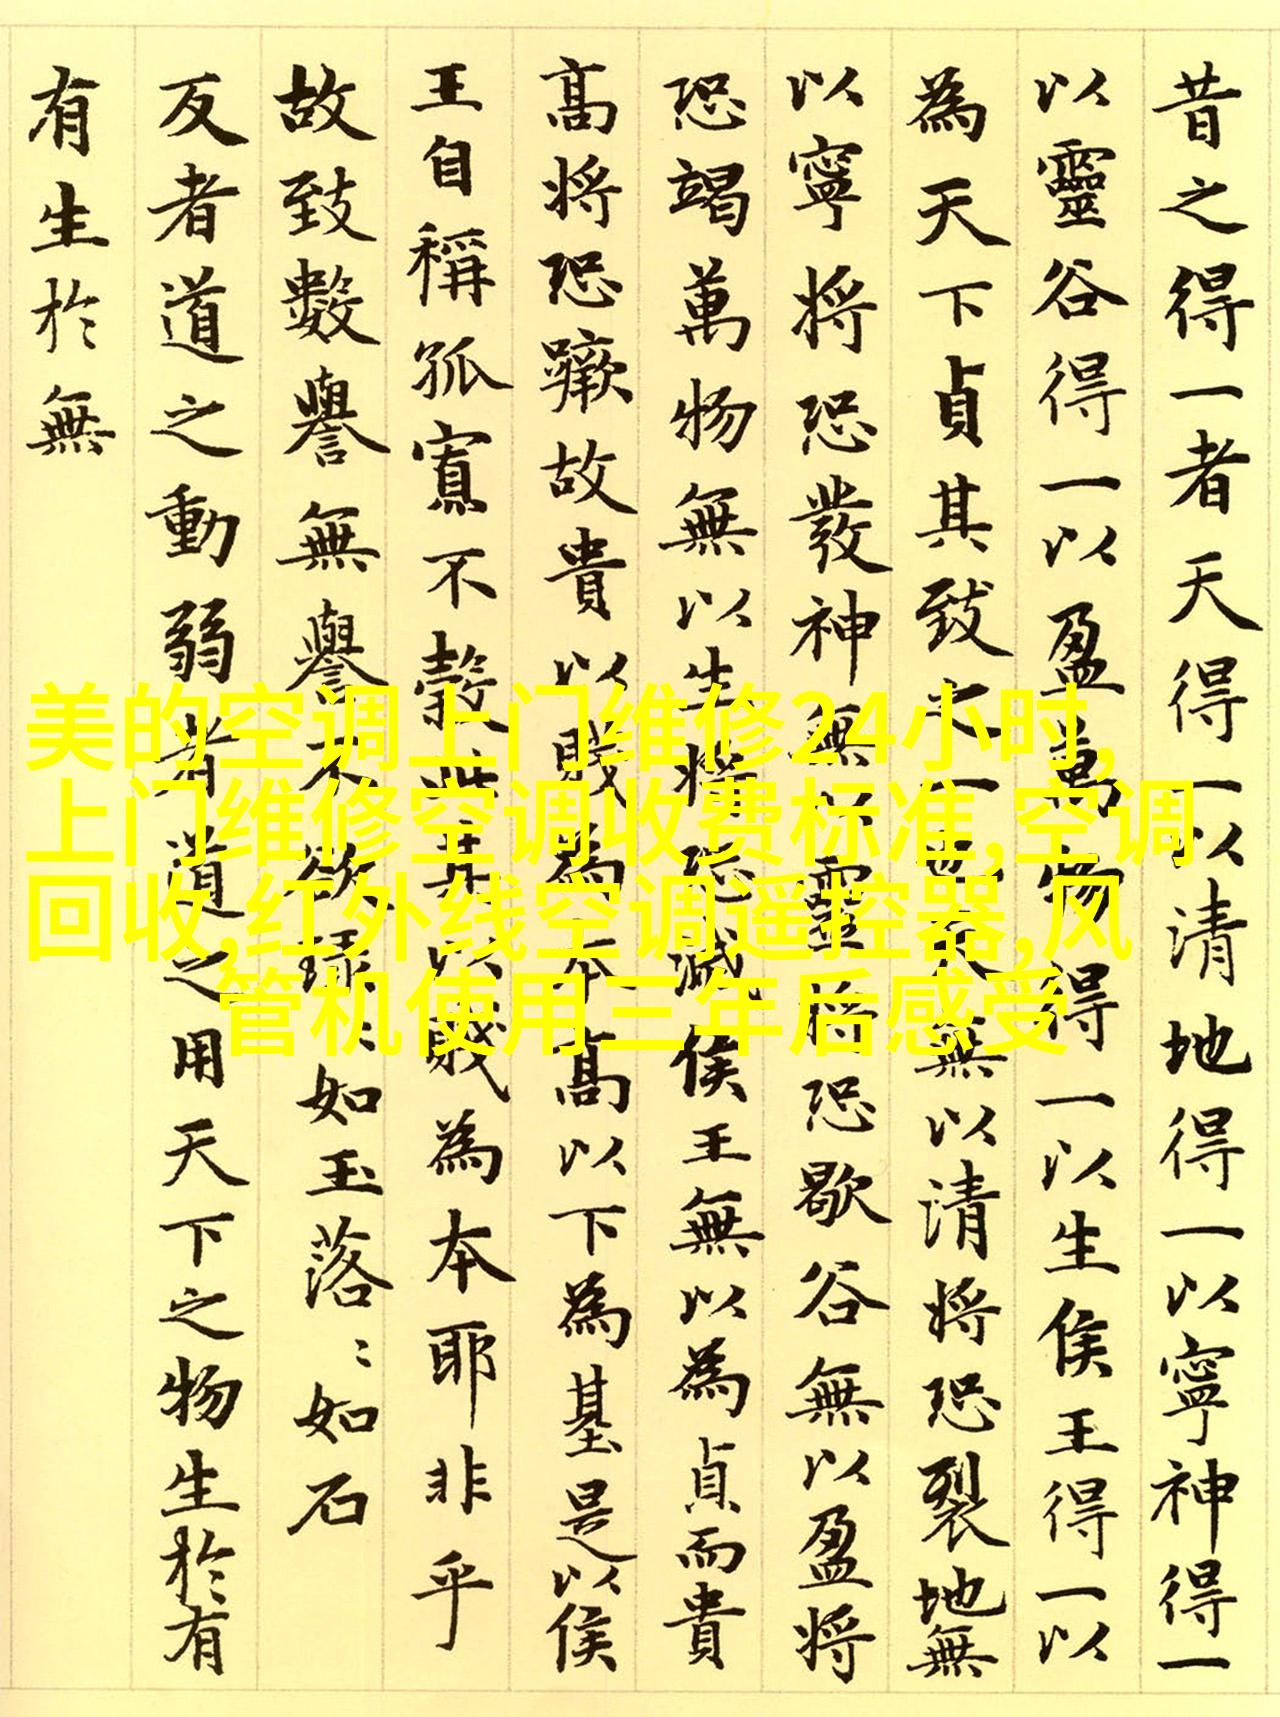 昔之得一者天得一以清地得一以寧神得一
以靈谷得一以盈萬物得一以生侯王得一以
為天下貞其致之一也天無以清將恐裂地無
以寧將恐發神無以靈將恐歇谷無以盈將
恐竭萬物無以生將恐滅侯王無以為貞而貴
高將恐蹶故貴以賤為本高以下為基是以侯
王自稱孤寡不穀此其以賤為本耶非乎
故致數譽無譽不欲琭〻如玉落〻如石
反者道之動弱者道之用天下之物生於有
有生於無
美的空调上门维修24小时,
上门维修空调收费标准,空调
回收,红外线空调遥控器,风
管机使用三年后感受